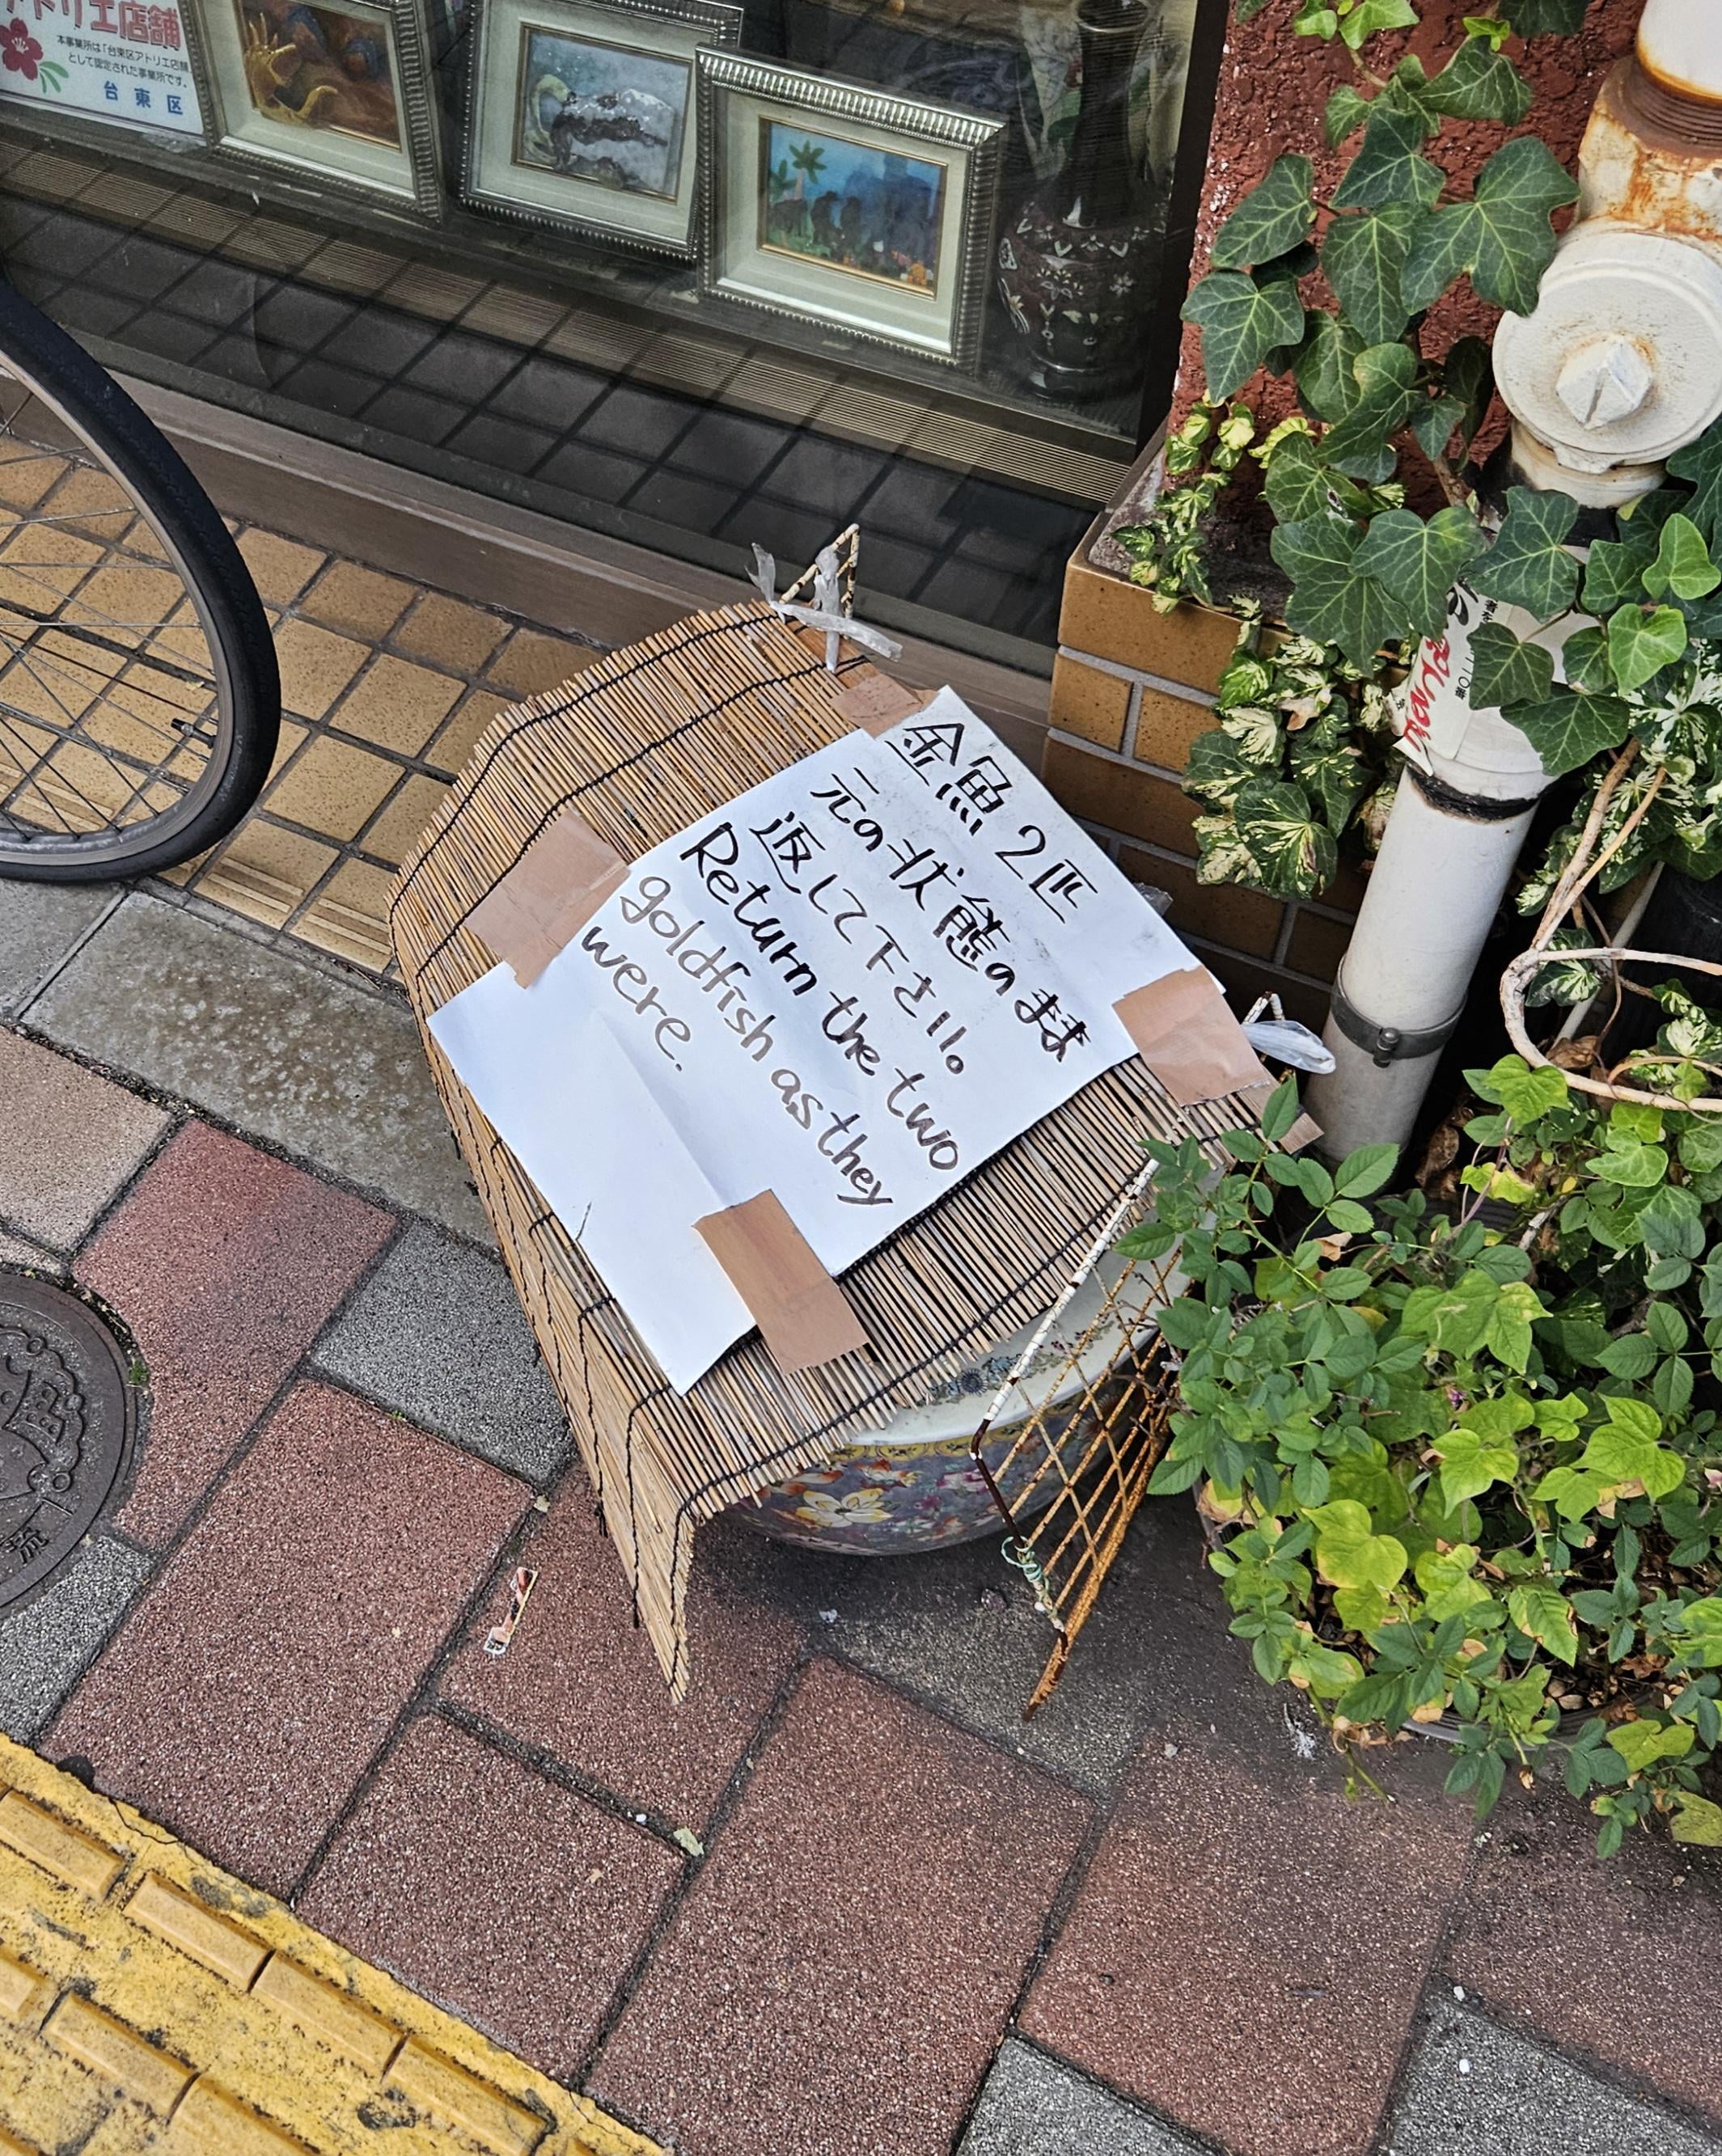 アトリエ店舗
本事業所は「台東区アトリエ店舗
として認定された事業所です。
台東区
金魚2匹
元の状態のまま
返して下さい。
Return the two
goldfish as they
were.